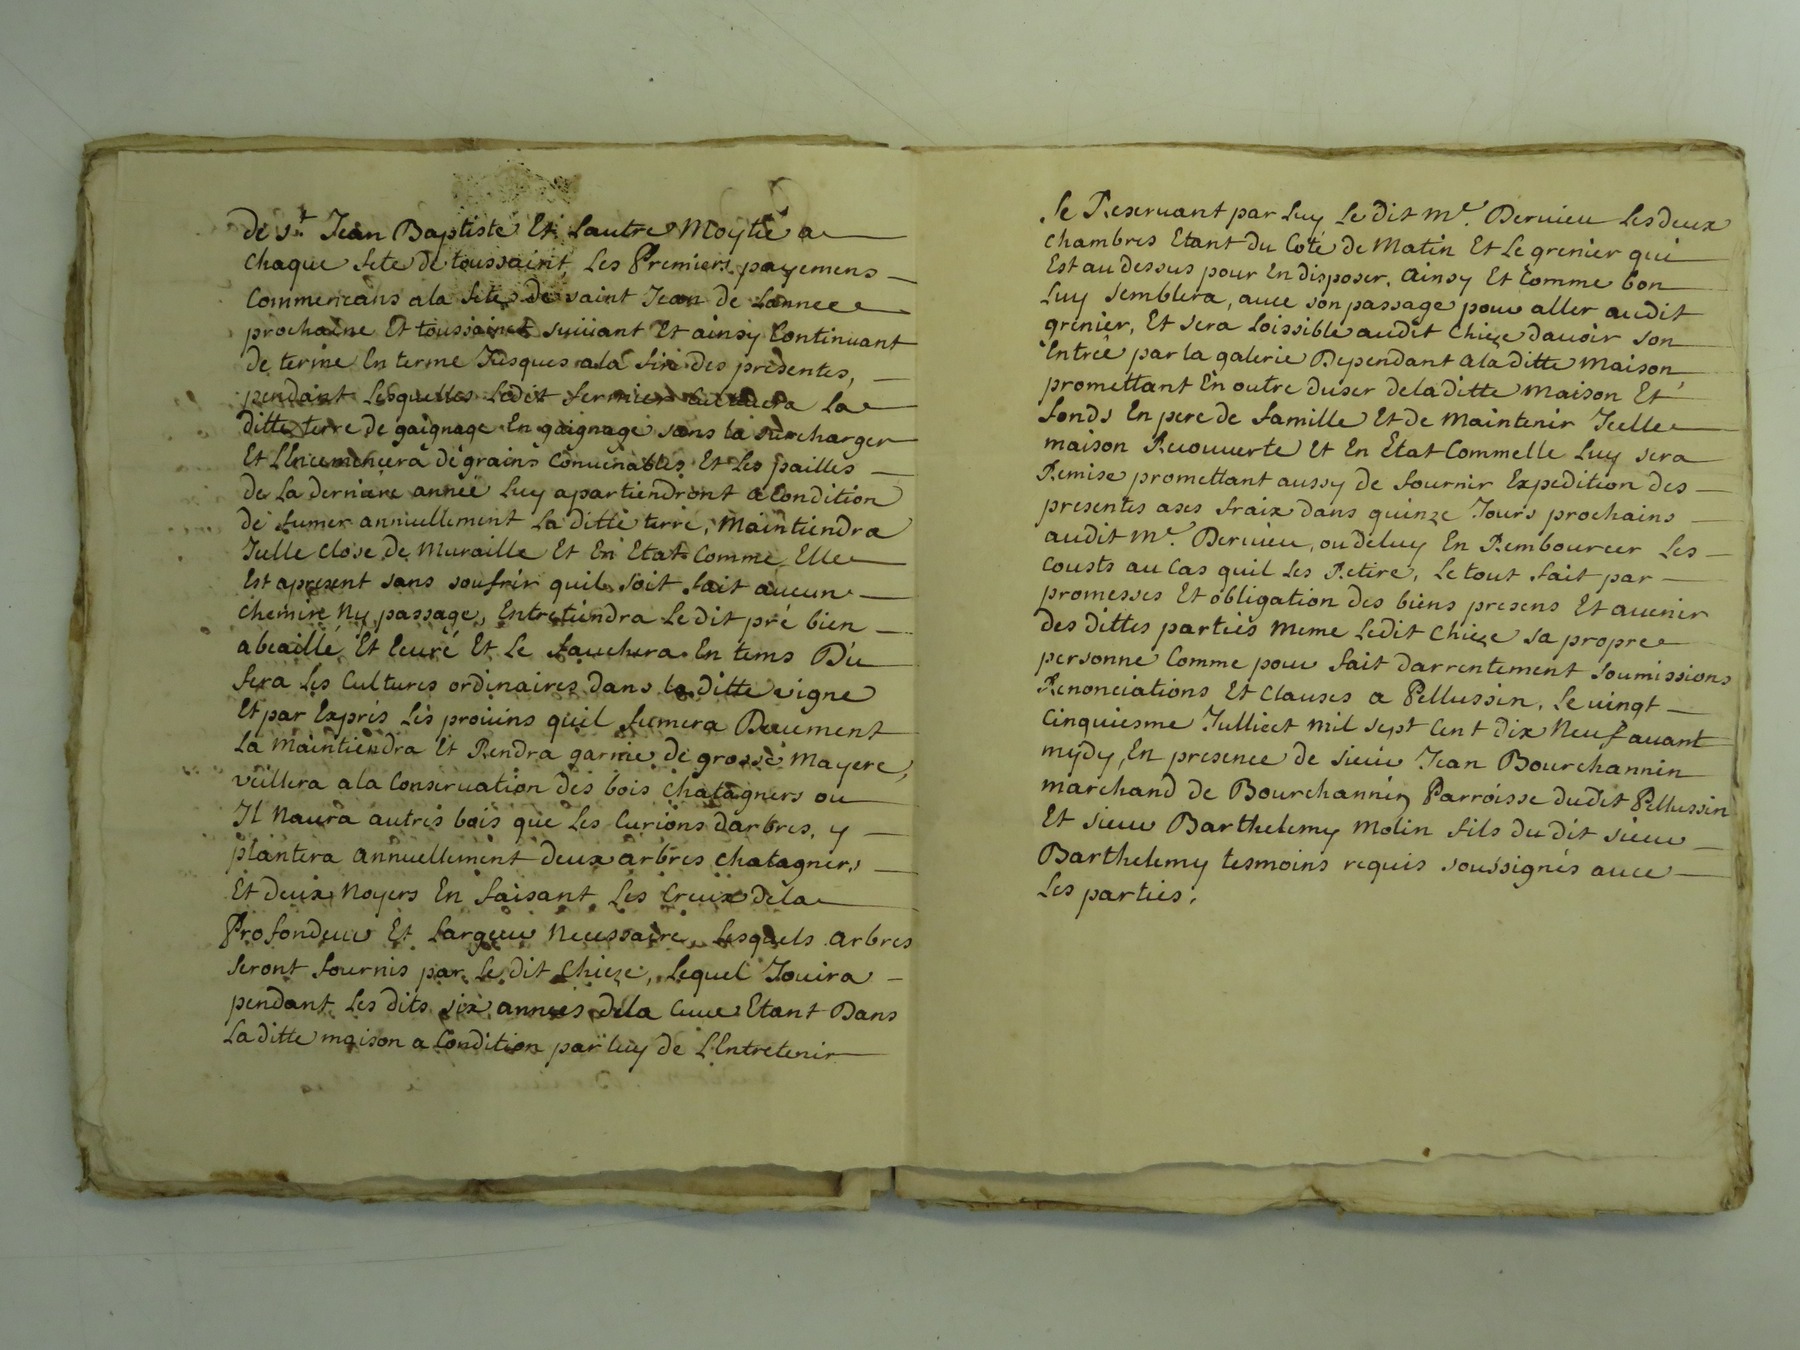 de st Jean Baptiste Et Lautre Moytié a
chaque fete de toussaint, Les Premiers payemens
Commencans a la fete de saint Jean de Lannee
prochaine Et toussaint suivant Et ainsy Continuant
de terme En terme Jusques a la fin des presentes,
pendant Lesquelles Ledit fermier La
ditte terre de gaignage En gaignage sans la surcharger
Et LEncemencera de grains Convenables Et Les pailles
de La derniere année Luy apartiendront a Condition
de fumer annuellement La ditte terre, Maintiendra
Icelle Close de Muraille Et En Etat Comme Elle
Est apresent sans soufrir quil soit fait aucun
chemin Ny passage, Entretiendra Le dit pré bien
abeaillé Et Ecuré Et Le fauchera En tems Du
fera Les Cultures ordinaires dans la ditte vigne
Et par Exprés Les provins quil fumera Deuement
La Maintiendra Et Rendra garnie de grosse Mayere,
veillera a la Conservation des bois Chatagners ou
Il Naura autres bois que Les Curions darbres, y
plantera annuellement deux arbres chatagners
Et deux Noyers En faisant Les Creux de la
Profondeur Et Largeur Necessaire, Lesquels arbres
seront fournis par Le dit Chieze, Lequel Jouira
pendant Les dits six années de la Cuve Etant Dans
La ditte maison a Condition par luy de LEntretenir
se Reservant par Luy Le dit Me. Dervieu Les deux
chambres Etant du Coté de Matin Et Le grenier qui
Est au dessus pour En disposer. ainsy Et Comme bon
Luy semblera, avec son passage pour aller audit
grenier, Et sera Loissible audit Chieze davoir son
Entrée par la galerie Dependant a la ditte Maison,
promettant En outre duser de la ditte Maison Et
fonds En pere de famille Et de Maintenir Icelle
maison Recouverte Et En Etat Commelle Luy sera
Remise promettant aussy de fournir Expedition des
presentes a ses fraix dans quinze Jours prochains
audit Me. Dervieu, ou de luy En Rembourcer Les
Cousts au Cas quil Les Retire, Le tout fait par
promesses Et obligation des biens presens Et avenir
des dittes parties Meme Ledit Chieze sa propre
personne Comme pour fait darrentement soumissions
Renonciations Et Clauses a Pellussin, Le vingt
Cinquiesme Julliect Mil sept Cent dix Neuf avant
mydy, En presence de sieur Jean Bourchannin
marchand de Bourchannin Parroisse dudit Pellussin
Et sieur Barthelemy Molin fils du dit sieur
Barthelemy tesmoins requis soussignés avec
Les parties.